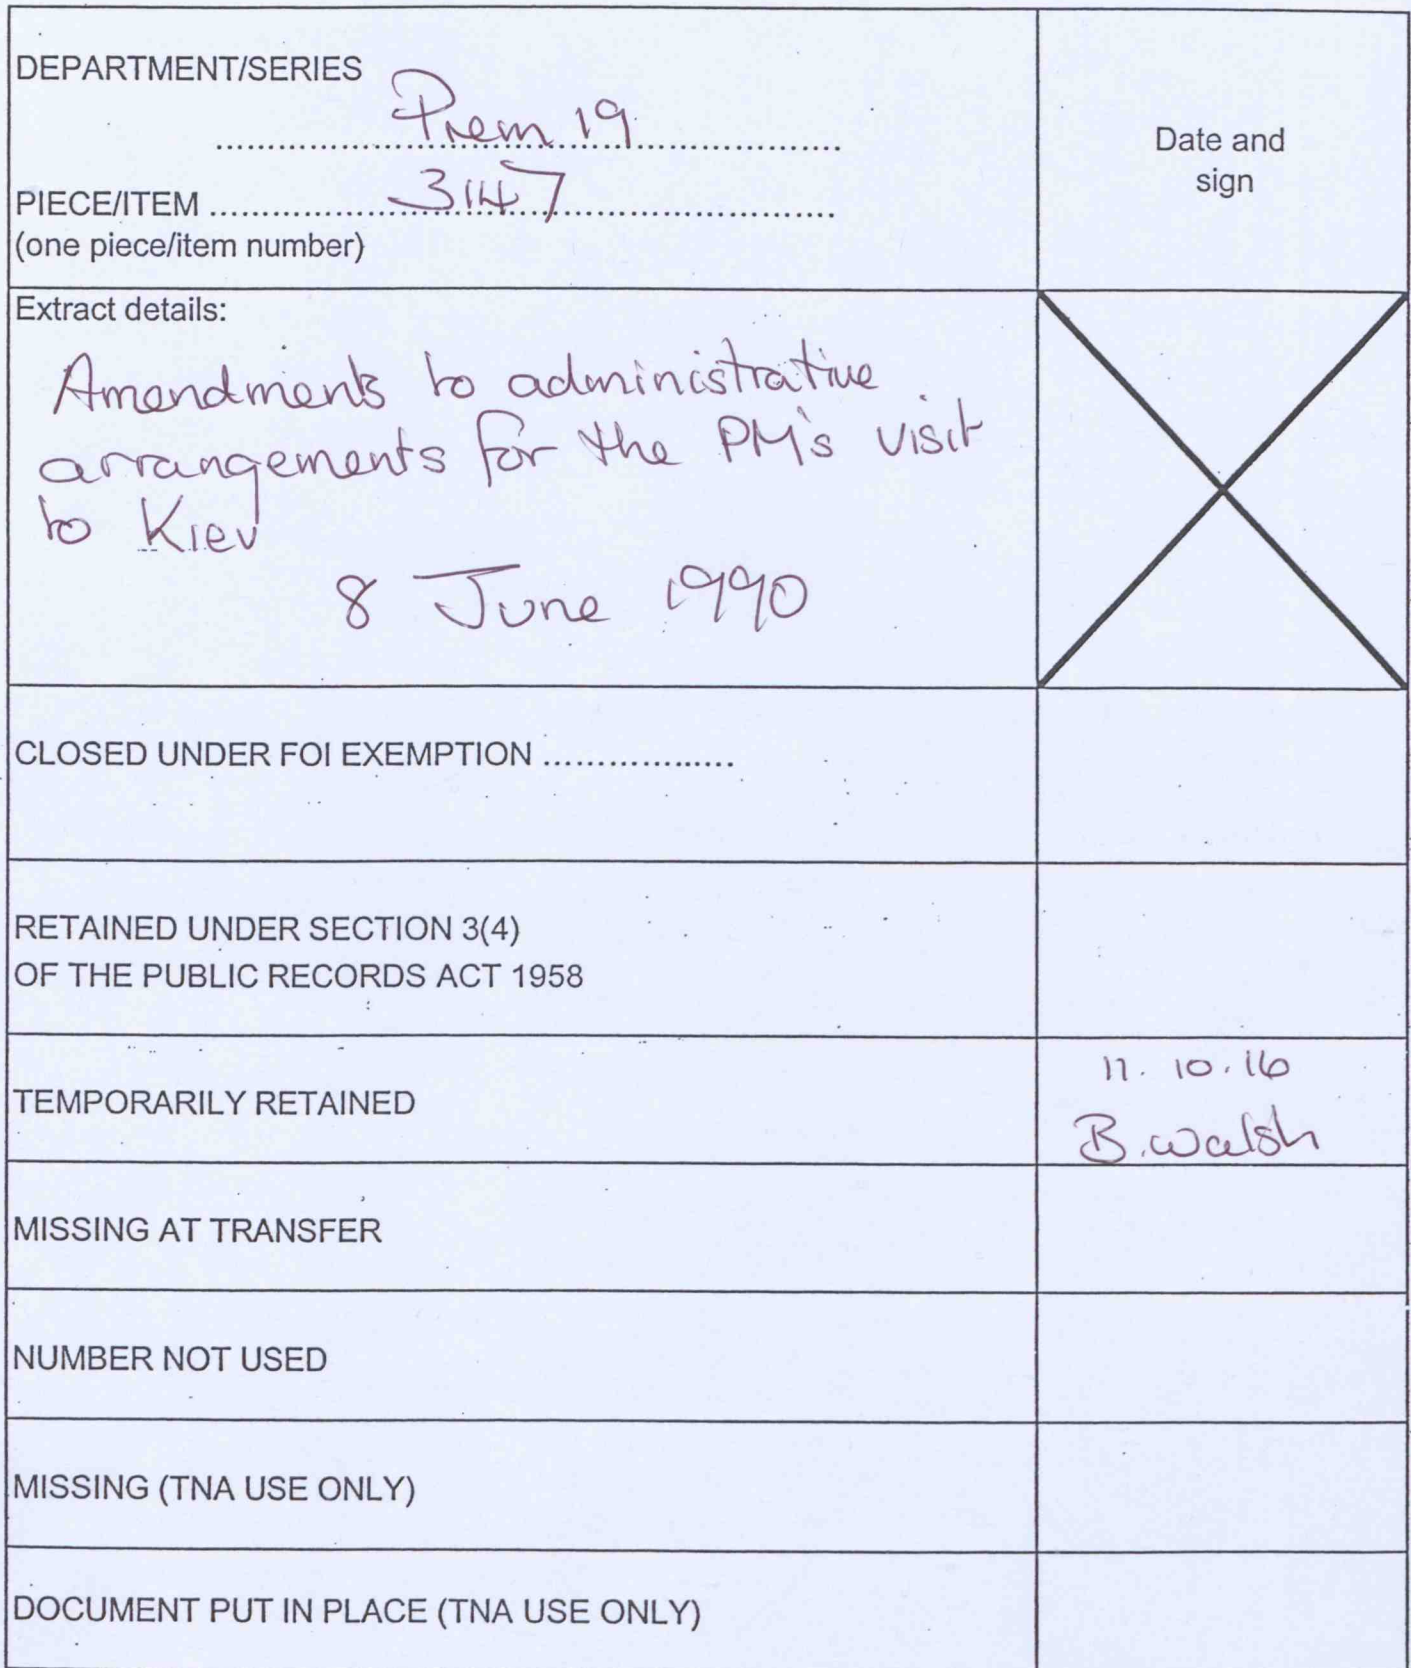 DEPARTMENT/SERIES
Prem 19
Date and
sign
PIECE/ITEM ........................................ 3147
(one piece/item number)
Extract details:
Amendments to administrative
arrangements for the PM's visit
to Kiev
8 June 1990
CLOSED UNDER FOI EXEMPTION ...................
RETAINED UNDER SECTION 3(4)
OF THE PUBLIC RECORDS ACT 1958
TEMPORARILY RETAINED
11.10.16
B. Walsh
MISSING AT TRANSFER
NUMBER NOT USED
MISSING (TNA USE ONLY)
DOCUMENT PUT IN PLACE (TNA USE ONLY)